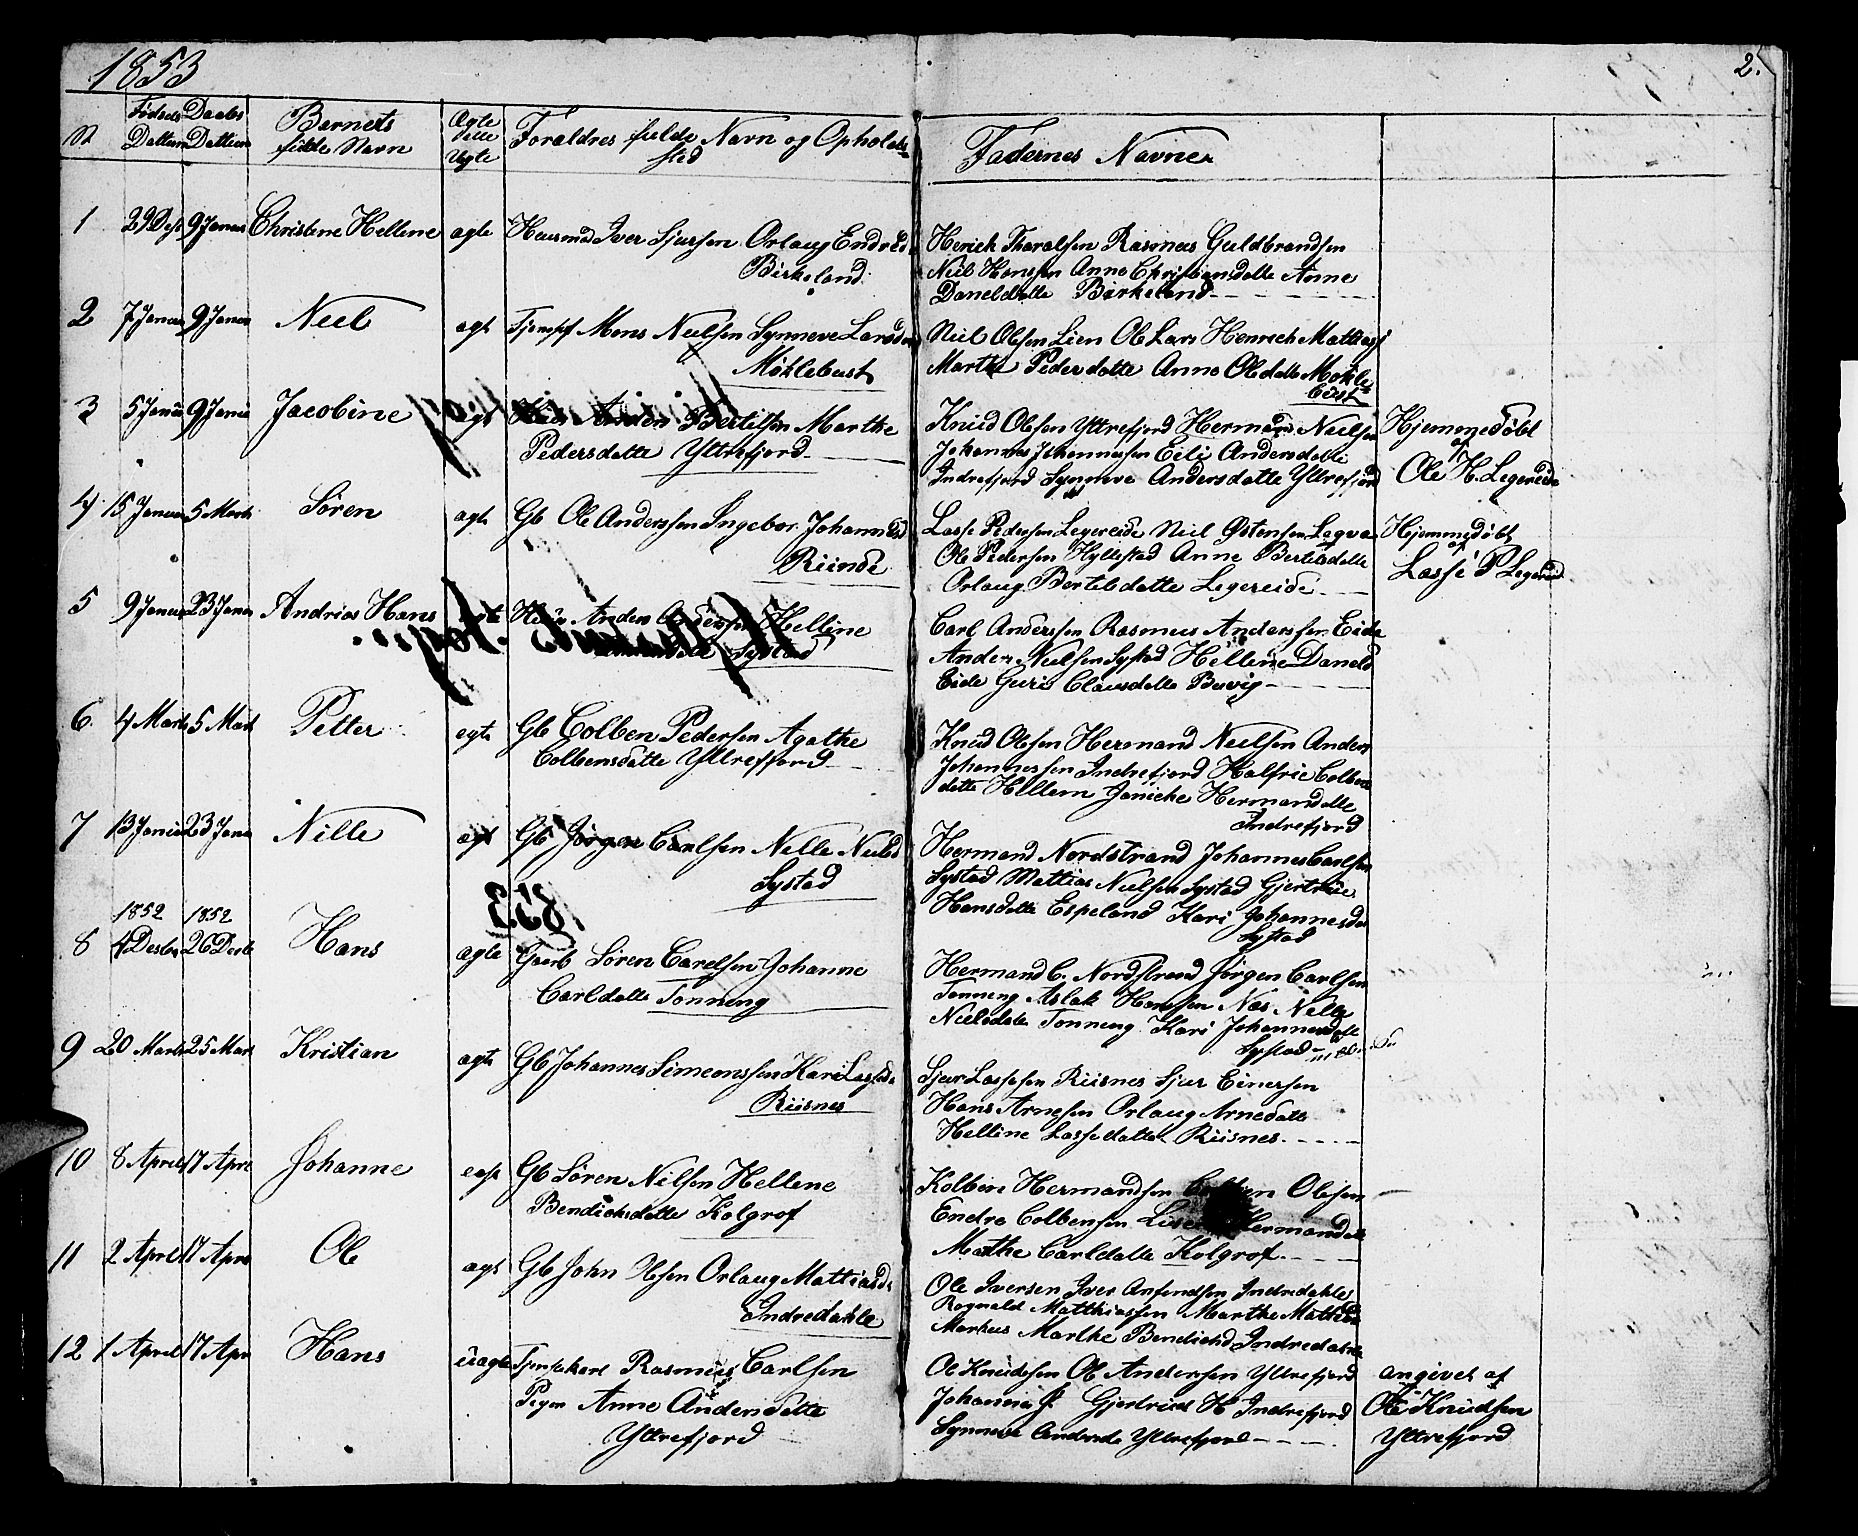 1853
2.
N
Fødsels Daabs
Dattum Dattum
Barnets
fulde Navn
Ægte
eller
Uegte
Foraldres fulde Navn og Opholds
sted
Fadernes Navner
1 29 Des 9 Januar Christene Hellene agte Huusmd Iver Sjursen Orlaug Endresd
Birkeland
Herick Tharalsen Rasmus Guldbrandsen
Niil Hanssen Anne Christiansdatte Anne
Daneldatte Birkeland
2 7 Januar 9 Januar Neel agt Tjenspf Mons Neelsen Synneve Larsd
Møklebust
Niil Olsen Lien Ole Lars Henrich Mattias
Marthe Pedersdatte Anne Oledatte Mokle
bust
3 5 Januar 9 Januar Jacobine agt Anders Bertilsen Marthe
Pedersdatte Yttrefjord
Knud Olesen Yttrefjord Hermand Neelsen
Johannes Johannessen Eili Andersdatte
Indrefjord Synneve Andersdatte Yttrefjord
Hjemmedøbt
af
Ole H. Legereide
4 15 Januar 5 Marts Søren agte Gb Ole Anderssen Ingebor Johannesd
Riinde
Lasse Pedersen Legereide Niil Østensen
Ole Pedersen Hyllestad Anne Bertelsdatte
Orlaug Bertelsdatte Legereide
Hjemmedøbt
af
Lasse P Legereid
5 9 Januar 23 Januar Andrias Hans agte Anders Andersen Helline
Systad
Carl Anderssen Rasmus Anderssen Eide
Anders Neelsen Systad Hellene Daneld
Eide Guri Clausdatte Buvig
6 4 Marts 5 Mart Petter egte Gb Colben Pedersen Agathe
Colbensdatte Yttrefjord
Knud Olesen Hermand Neelsen Anders
Johannessen Indrefjord Halfrie Colbens
datte Hellem Janicke Hermandatte
Indrefjord
7 13 Januar 23 Januar Nille agt Gb Jørgen Carlsen Nelle Neelsd
Systad
Hermand Nordstrand Johannes Carlsen
Systad Mattias Neelsen Systad Gjertrue
Hansdatte Espeland Kari Johannesda
Systad
1852 1852
8 4 Desbr 26 Desb Hans agte Gaarb Søren Carelsen Johanne
Carldatte Tonning
Hermand C. Nordstrand Jørgen Carlsen
Tonning Aslak Hanssen Nes Nille
Nielsdatte Tonning Kari Johannesdatte
Systad
9 20 Marts 25 Mart Kristian agte Gb Johannes Simeonssen Kari Lassed
Riisnes
Sjur Lassesen Riisnes Sjur Einersen
Hans Arnesen Orlaug Arnedatte
Helline Lassedatte Riisnes
10 8 April 17 Apri Johanne Gb Søren Nilsen Hellene
Bendicksdatte Kolgrof
Kolben Hermandsen Olesen
Endre Colbensen Hermandatte
Marthe Carldatte Kolgrof
11 2 April 17 Apri Ole agt Gb John Olesen Orlaug Mattiasd
Indredahle
Ole Iversen Iver Anfindsen Indredahle
Rognald Matthiassen Marthe Mathia
Markus Marthe Bendicksd Indredahle
12 1 April 17 Apr Hans uagte Tjenstekarl Rasmus Carlsen
Pigen Anne Andersdatte
Yttrefjord
Ole Knudsen Ole Andersen Yttrefjord
Johannes J. Gjertrud H Indrefjord
Synneve Andersd Yttrefjord
angivet af
Ole Knudsen
Yttrefjord